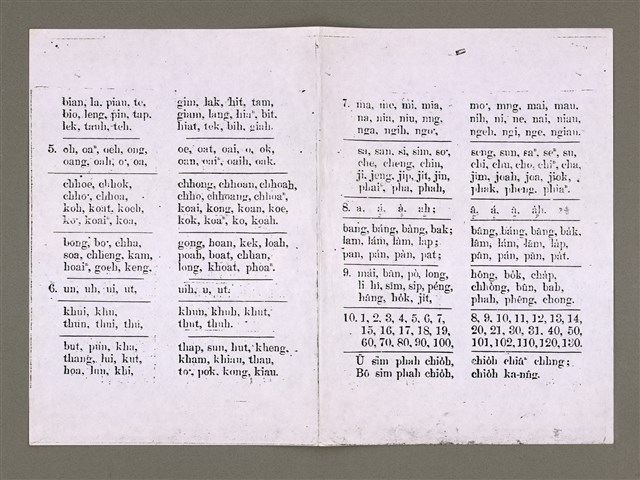 bian, la, pian, te,
gim, lak, hit, tam,
bio, leng, pin, tap,
giam, lang, hiaⁿ, bit.
lek, tanh, teh.
hiat, tek, bih, giah.
5. oh, oaⁿ, oeh, ong,
oe, oat, oai, o, ok,
oang, oah, o͘, oa,
oan, oaiⁿ, oaih, oak.
chhoe, chhok,
chhong, chhoan, chhoah,
chho͘, chhoa,
chho, chhoang, chhoaⁿ,
koh, koat, koeh,
koai, kong, koan, koe,
ko͘, koaiⁿ, koa,
kok, koaⁿ, ko, koah.
bong, bo͘, chha,
gong, hoan, kek, loah,
soa, chheng, kam,
poah, boat, chhan,
hoaiⁿ, goeh, keng.
long, khoat, phoaⁿ.
6. un, uh, ui, ut,
uih, u, ut.
khui, khu,
khun, khuh, khut,
thun, thui, thu,
thut, thuh.
but, pun, kha,
thap, sun, hut, kheng,
thang, lui, kut,
kham, khiau, thau,
hoa, lun, khi,
to͘, pok, kong, kiau.
7. ma, me, mi, mia,
mo͘, mng, mai, mau.
na, nia, niu, nng,
nih, ni, ne, nai, niau,
nga, ngih, ngo͘,
ngeh, ngi, nge, ngiau.
sa, san, si, sim, so͘,
seng, sun, saⁿ, seⁿ, su,
che, cheng, chin,
chi, chu, cho, chiⁿ, cha,
ji, jeng, jip, jit, jin,
jim, joah, joa, jiok,
phaiⁿ, pha, phah,
phak, pheng, phiaⁿ.
8. a, á, à, ah;
â, á, ā, a̍h.
bang, báng, bàng, bak;
bâng, báng, bāng, ba̍k.
lam, lám, làm, lap;
lâm, lám, lām, la̍p;
pan, pán, pàn, pat;
pân, pán, pān, pa̍t.
9. mái, bān, pò, long,
hông, bo̍k, cha̍p,
li hi, sim, sip, péng,
chhòng, bûn, bah,
háng, ho̍k, ji̍t,
phah, phêng, chong.
10. 1, 2, 3, 4, 5, 6, 7,
8, 9, 10, 11, 12, 13, 14,
15, 16, 17, 18, 19,
20, 21, 30, 31, 40, 50,
60, 70, 80, 90, 100,
101, 102, 110, 120, 130.
Ū sim phah chio̍h,
chio̍h chiāⁿ chhng;
Bô sim phah chio̍h,
chio̍h ka-nńg.